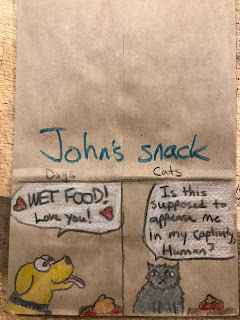 John's snack
Dogs
Cats
WET FOOD!
Love you!
Is this
supposed to
appease me
in my captivity,
Human?